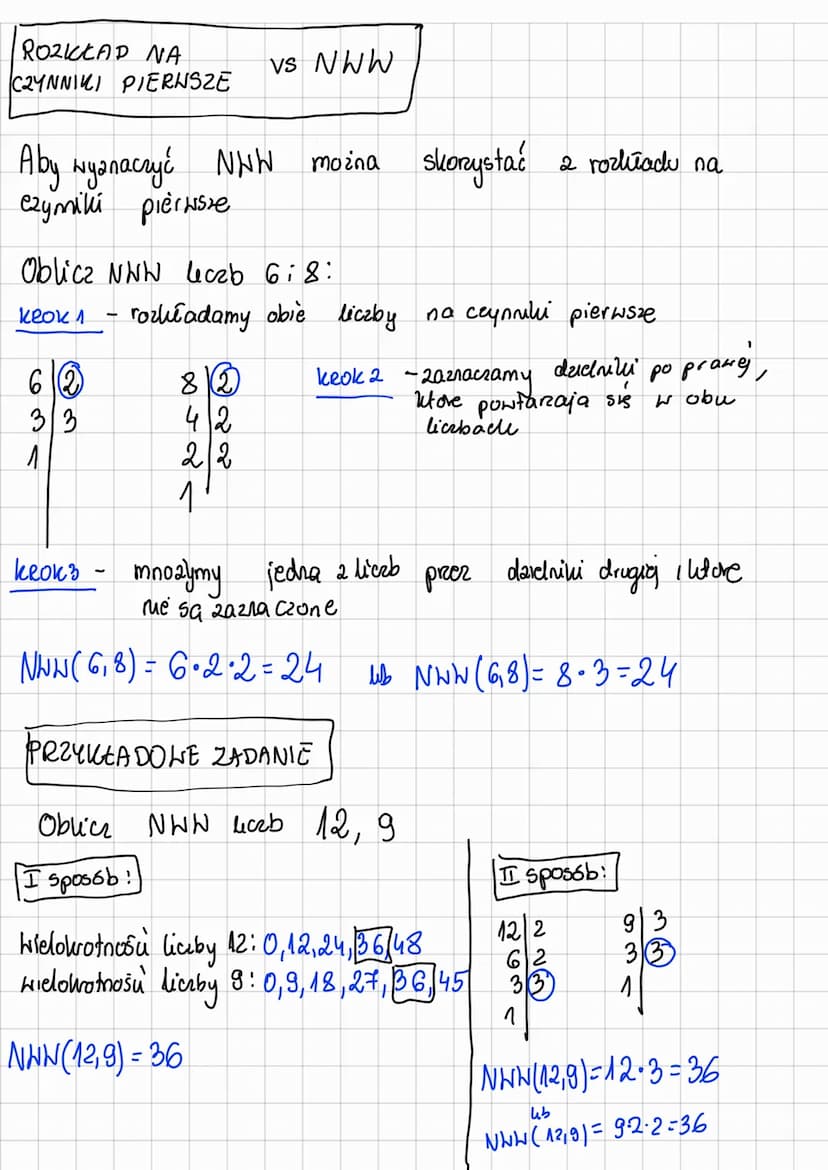 ROZKŁAD NA
CZYNNIKI PIERWSZE vs NWW
Aby wyznaczyć NWW można skorzystać z rozkładu na
czynniki pierwsze
Oblicz NWW liczb 6 i 8:
KROK 1 - rozkładamy obie liczby na czynniki pierwsze
6 | 2
3 | 3
1
8 | 2
4 | 2
2 | 2
1
KROK 2 - zaznaczamy dzielniki po prawej,
które powtarzają się w obu
liczbach
KROK 3 - mnożymy jedną z liczb przez dzielniki drugiej, które
nie są zaznaczone
NWW(6,8) = 6·2·2 = 24 lub NWW(6,8) = 8·3 = 24
PRZYKŁADOWE ZADANIE
Oblicz NWW liczb 12, 9
I sposób:
Wielokrotności liczby 12: 0,12,24,36,48
wielokrotności liczby 9: 0,9,18,27,36,45
NWW(12,9) = 36
II sposób:
12 | 2
6 | 2
3 | 3
1
9 | 3
3 | 3
1
NWW(12,9) = 12·3 = 36
lub
NWW(12,9) = 9·2·2 = 36